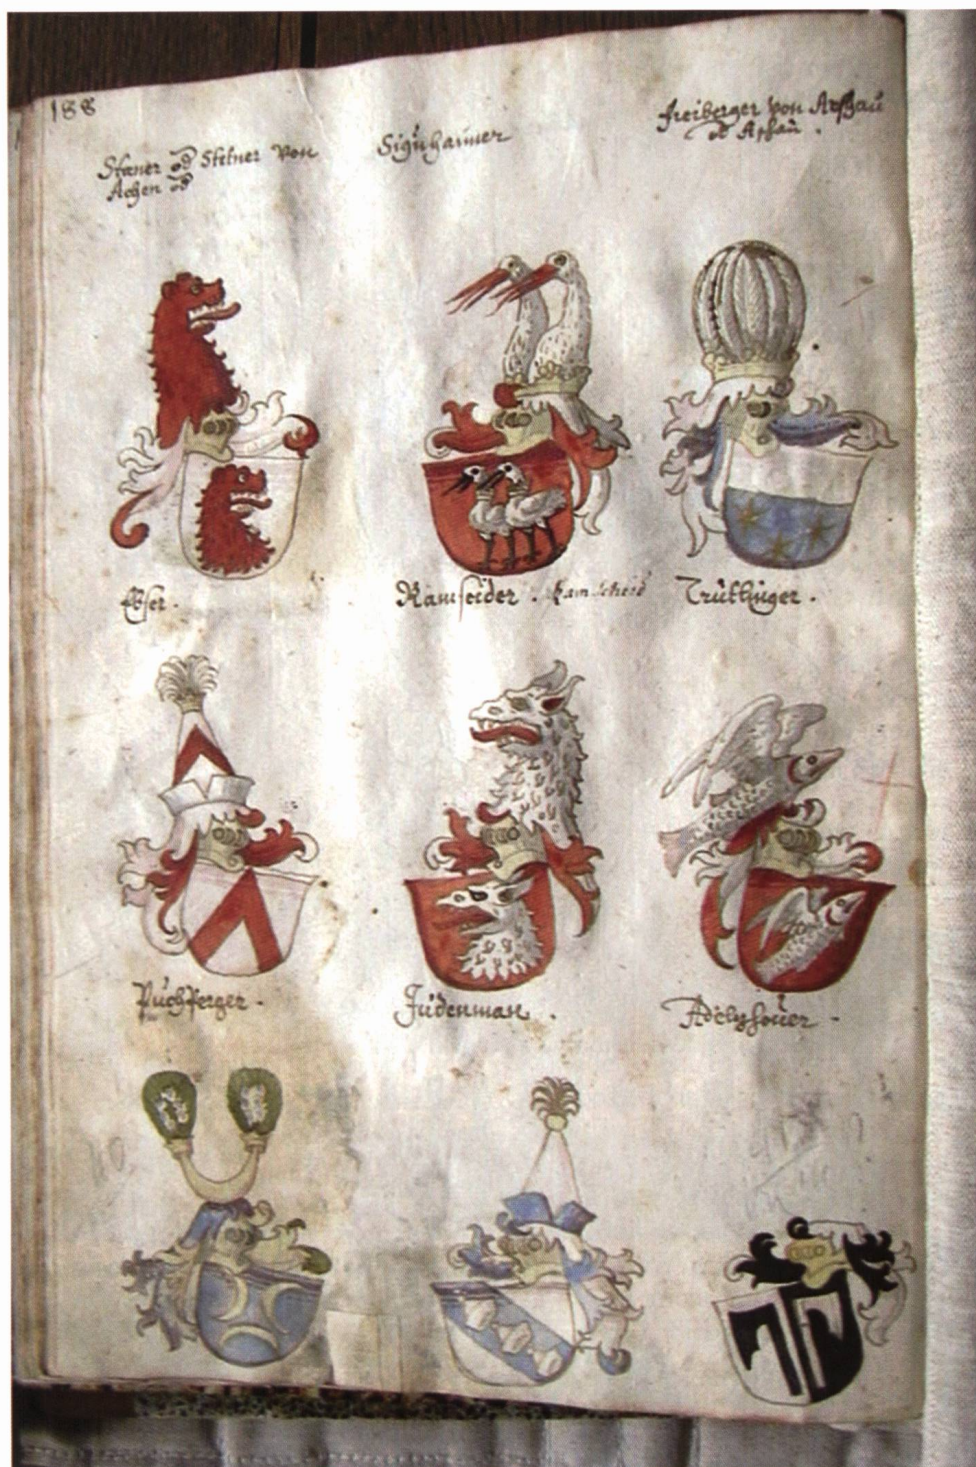 188
Staner od Stelner von
Achen od
Sigühaimer
freiberger von Aschau
od Aschau .
Ebser .
Ramseider . Ramscheid
Trütlinger .
Püchperger .
Jüdenman .
Adelzhover .